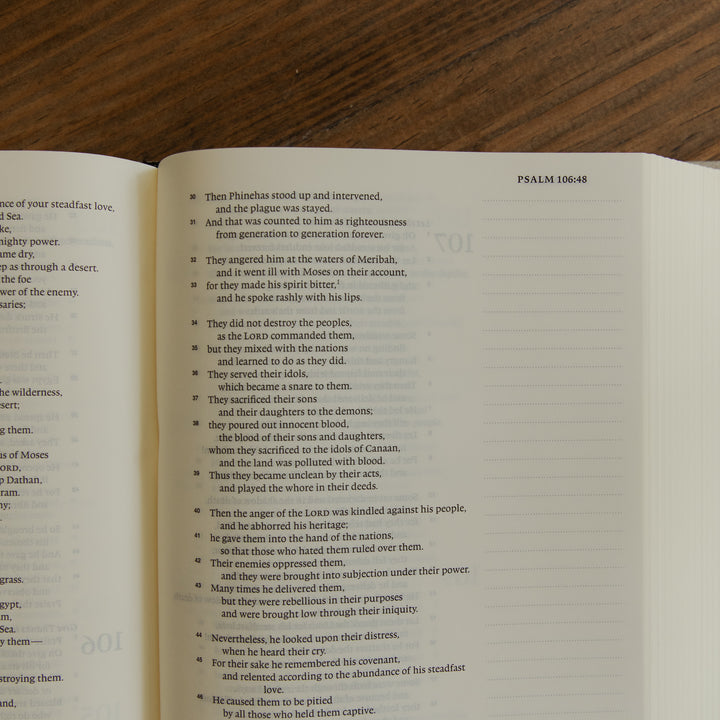 nce of your steadfast love,
d Sea.
ke,
nighty power.
ame dry,
ep as through a desert.
the foe
wer of the enemy.
saries;
he wilderness,
sert;
g them.
us of Moses
ORD,
p Dathan,
ram.
ny;
grass.
gypt,
m,
Sea.
y them—
stroying them.
and,
PSALM 106:48
30 Then Phinehas stood up and intervened,
and the plague was stayed.
31 And that was counted to him as righteousness
from generation to generation forever.
32 They angered him at the waters of Meribah,
and it went ill with Moses on their account,
33 for they made his spirit bitter,¹
and he spoke rashly with his lips.
34 They did not destroy the peoples,
as the LORD commanded them,
35 but they mixed with the nations
and learned to do as they did.
36 They served their idols,
which became a snare to them.
37 They sacrificed their sons
and their daughters to the demons;
38 they poured out innocent blood,
the blood of their sons and daughters,
whom they sacrificed to the idols of Canaan,
and the land was polluted with blood.
39 Thus they became unclean by their acts,
and played the whore in their deeds.
40 Then the anger of the LORD was kindled against his people,
and he abhorred his heritage;
41 he gave them into the hand of the nations,
so that those who hated them ruled over them.
42 Their enemies oppressed them,
and they were brought into subjection under their power.
43 Many times he delivered them,
but they were rebellious in their purposes
and were brought low through their iniquity.
44 Nevertheless, he looked upon their distress,
when he heard their cry.
45 For their sake he remembered his covenant,
and relented according to the abundance of his steadfast
love.
46 He caused them to be pitied
by all those who held them captive.